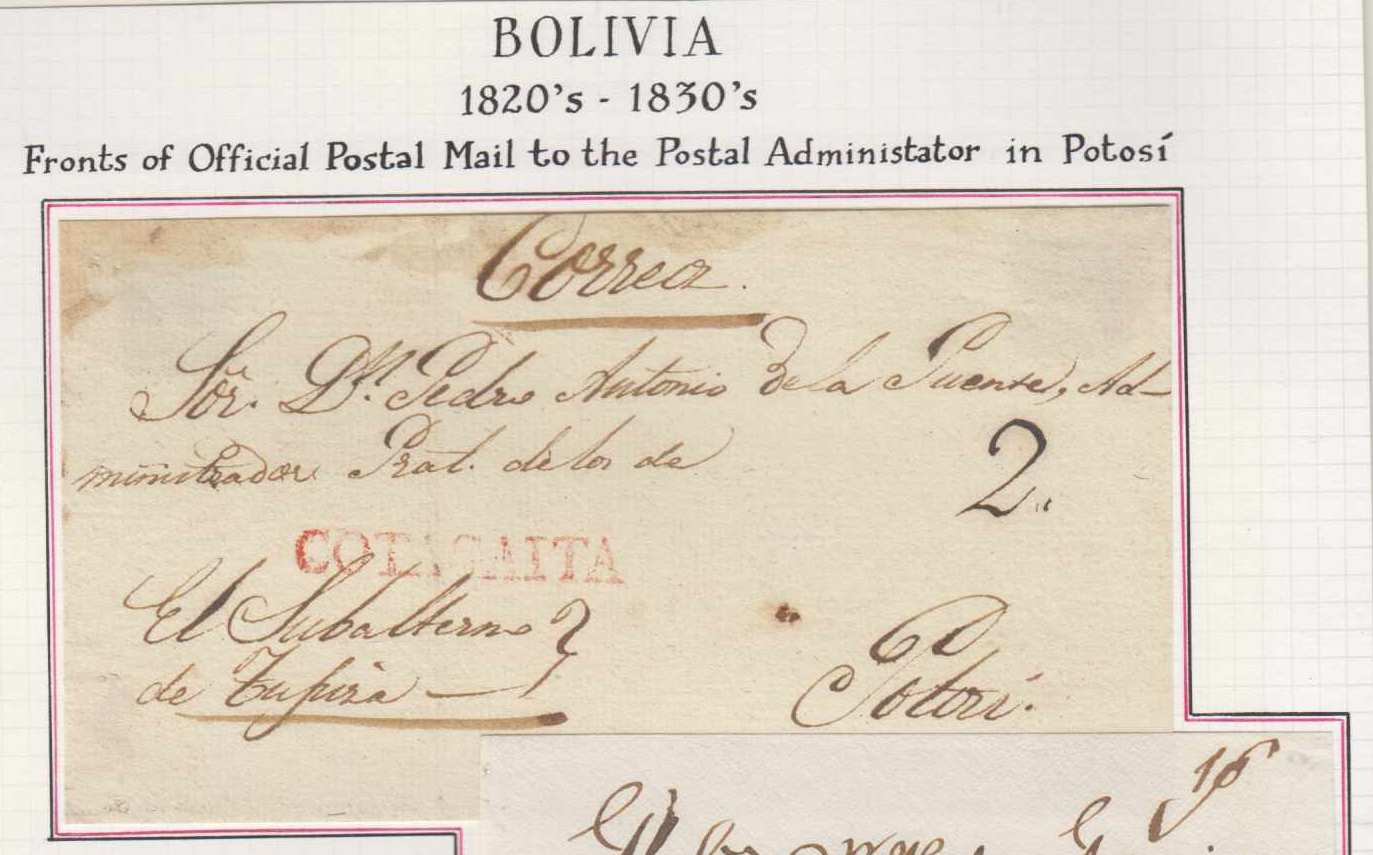 BOLIVIA
1820's - 1830's
Fronts of Official Postal Mail to the Postal Administator in Potosí
Correos.
Sor. Dn. Pedro Antonio de la Puente, Ad-
ministrador Pral. de los de
2.
COTAGAITA
El Subalterno
de Tupiza
Potosí.